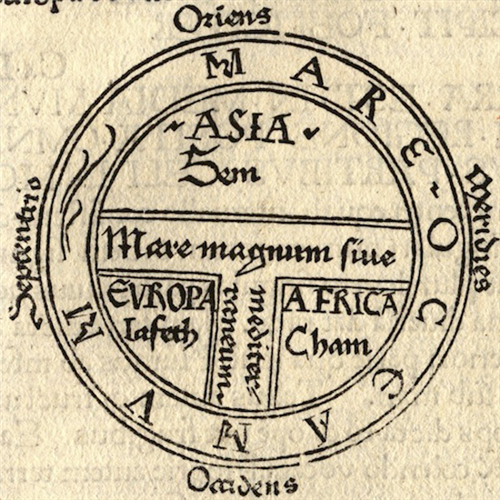 Oriens
MARE OCEANVM
ASIA
Sem
Meridies
Septentrio
Mare magnum siue
mediter
raneum
EVROPA
Iafeth
AFRICA
Cham
Occidens